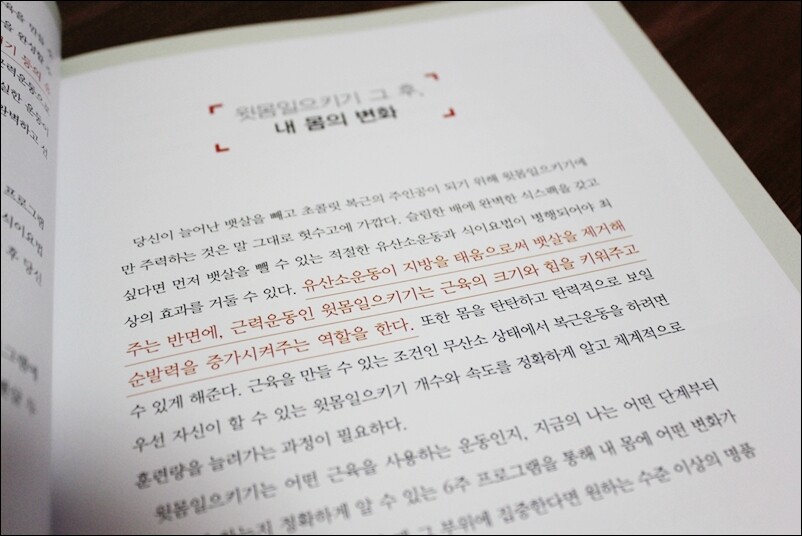 육을 만들 수
을 완성할 수
기 등의 운
근력운동으로
실한 운동이
완벽하고 신
프로그램
식이요법
후 당신
윗몸일으키기 그 후,
내 몸의 변화
당신이 늘어난 뱃살을 빼고 초콜릿 복근의 주인공이 되기 위해 윗몸일으키기에
만 주력하는 것은 말 그대로 헛수고에 가깝다. 슬림한 배에 완벽한 식스팩을 갖고
싶다면 먼저 뱃살을 뺄 수 있는 적절한 유산소운동과 식이요법이 병행되어야 최
상의 효과를 거둘 수 있다. 유산소운동이 지방을 태움으로써 뱃살을 제거해
주는 반면에, 근력운동인 윗몸일으키기는 근육의 크기와 힘을 키워주고
순발력을 증가시켜주는 역할을 한다. 또한 몸을 탄탄하고 탄력적으로 보일
수 있게 해준다. 근육을 만들 수 있는 조건인 무산소 상태에서 복근운동을 하려면
우선 자신이 할 수 있는 윗몸일으키기 개수와 속도를 정확하게 알고 체계적으로
훈련량을 늘려가는 과정이 필요하다.
윗몸일으키기는 어떤 근육을 사용하는 운동인지, 지금의 나는 어떤 단계부터
하는지 정확하게 알 수 있는 6주 프로그램을 통해 내 몸에 어떤 변화가
그 부위에 집중한다면 원하는 수준 이상의 명품